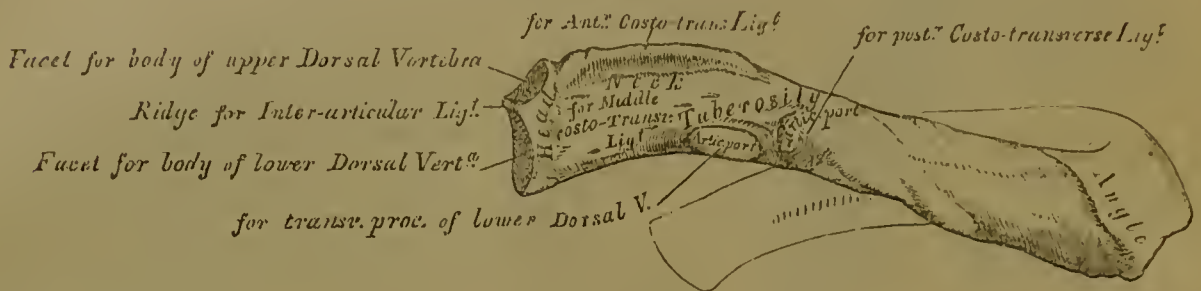 for Antr. Costo-trans: Ligt.
for postr. Costo-transverse Ligt.
Facet for body of upper Dorsal Vertebra
Ridge for Inter-articular Ligt.
Facet for body of lower Dorsal Verta.
for transv. proc. of lower Dorsal V.
Head
Neck
for Middle
Costo-Transve.
Ligt.
Tuberosity
Artic. part
Angle